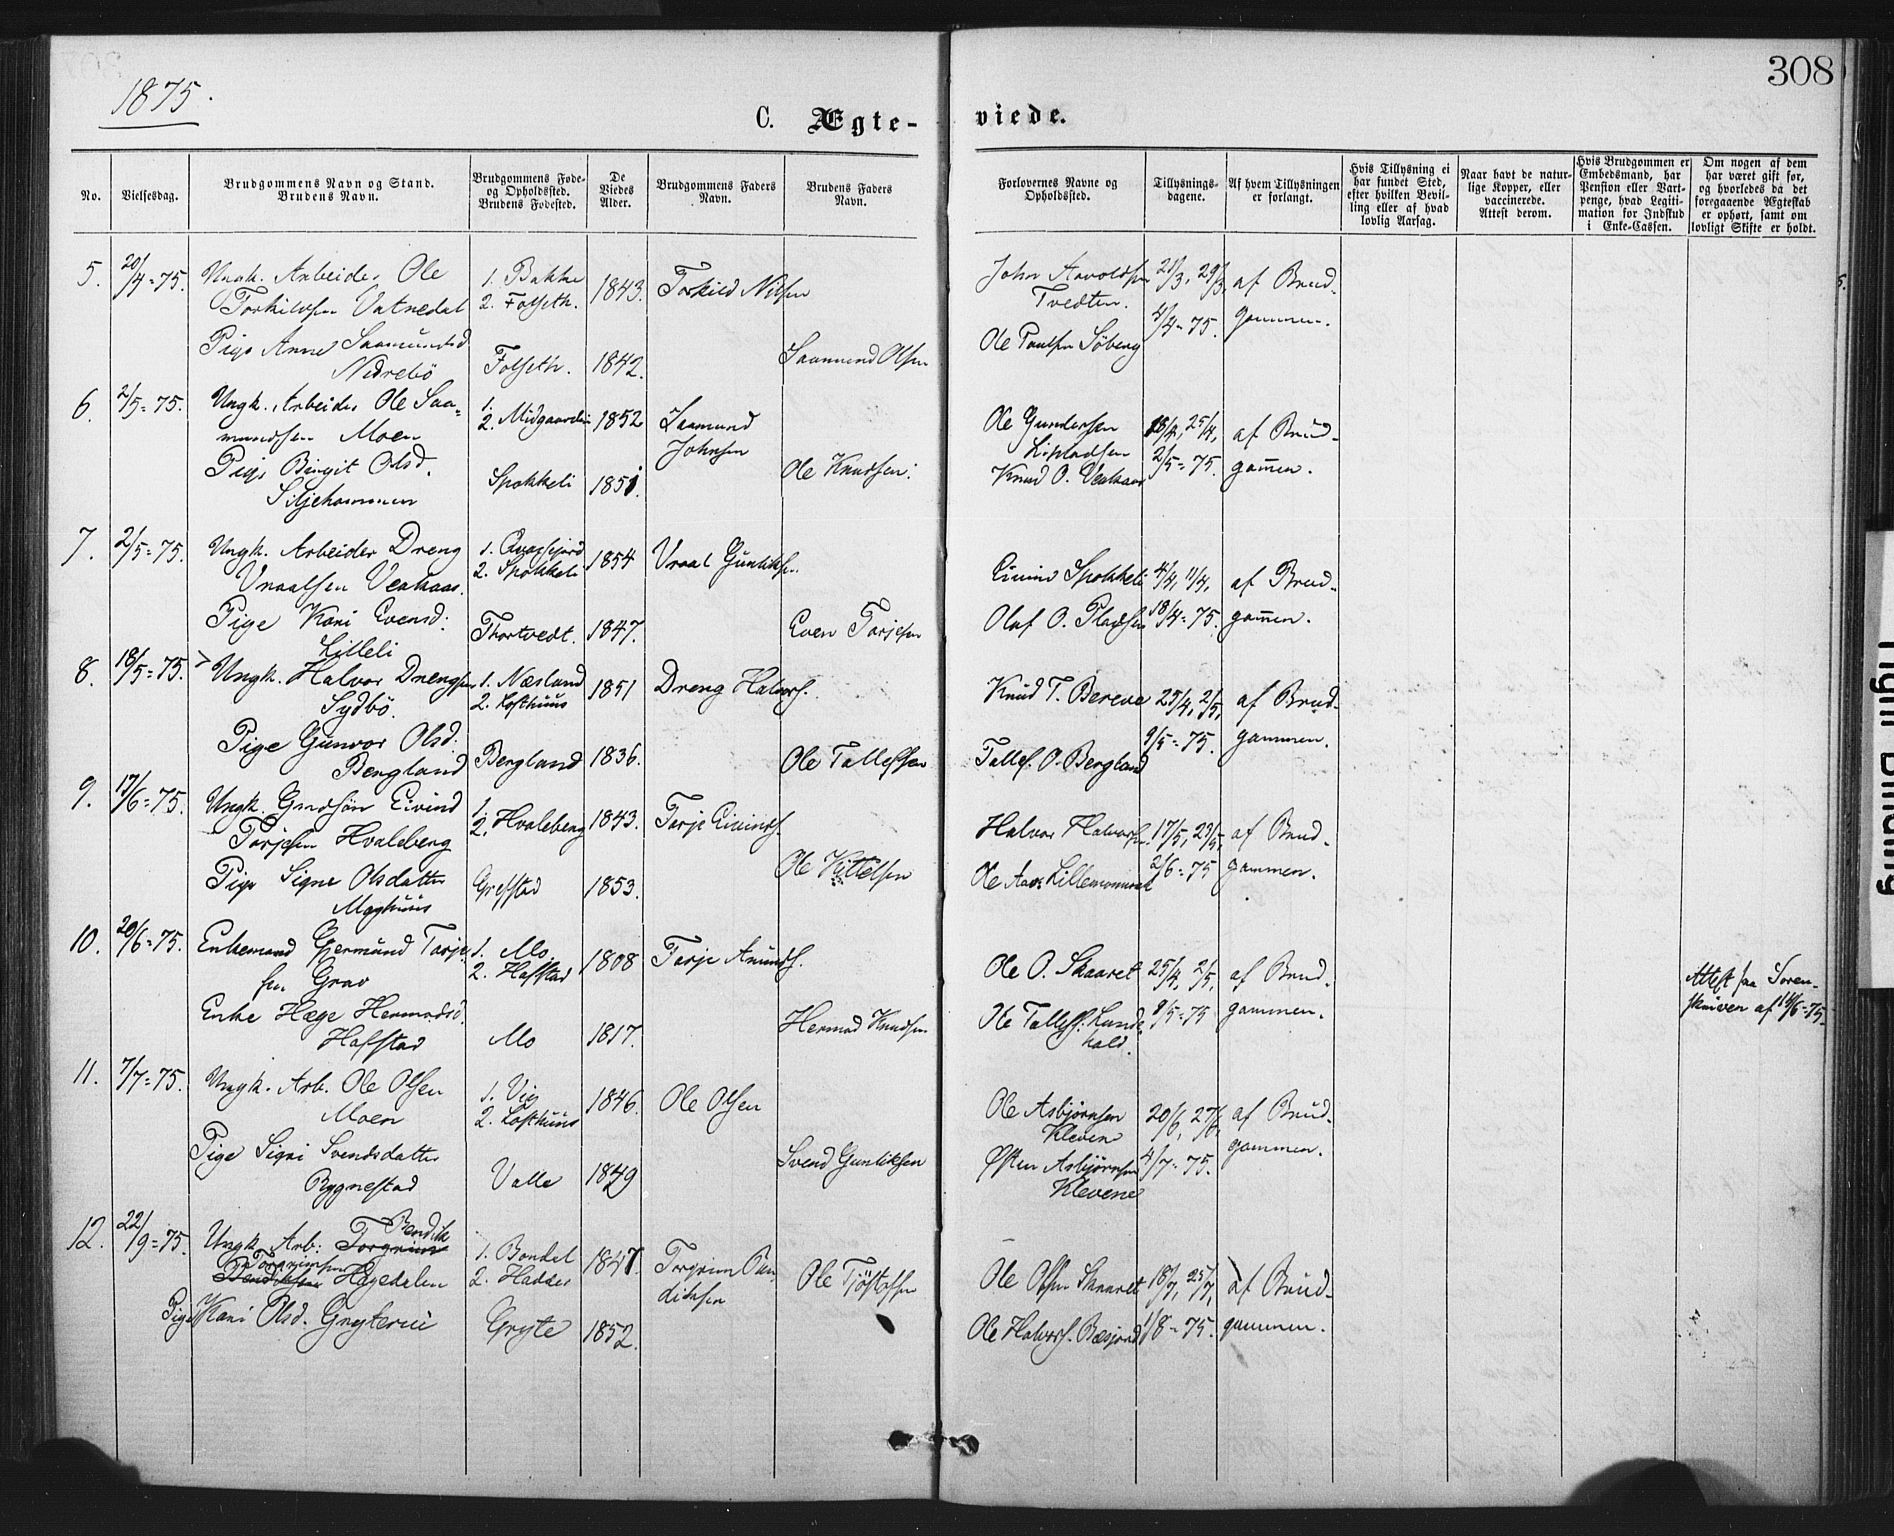 308
1875.
C. Ægte-viede.
No.
Vielsesdag.
Brudgommens Navn og Stand.
Brudens Navn.
Brudgommens Føde-
og Opholdssted.
Brudens Fødested.
De
Viedes
Alder.
Brudgommens Faders
Navn.
Brudens Faders
Navn.
Forlovernes Navne og
Opholdssted.
Tillysnings-
dagene.
Af hvem Tillysningen
er forlangt.
Hvis Tillysning ei
har fundet Sted,
efter hvilken Bevil-
ling eller af hvad
lovlig Aarsag.
Naar havt de natur-
lige Kopper, eller
vaccinerede.
Attest derom.
Hvis Brudgommen er
Embedsmand, har
Pension eller Vart-
penge, hvad Legiti-
mation for Indskud
i Enke-Cassen.
Om nogen af dem
har været gift før,
og hvorledes da det
foregaaende Ægteskab
er ophørt, samt om
lovligt Skifte er holdt.
5. 20/4=75. Ungk. Arbeider Ole 1. Bakke 1843. Torkild Nilsen John Aavoldsen 21/3, 29/3, af Brud-
Torkildsen Vatnedal 2. Folseth. Tvedten. 4/4=75. gommen.
Pige Anne Saamundsd Folseth. 1842. Saamund Olsen Ole Paulsen Söberg
Nedrebö
6. 2/5=75. Ungk. Arbeider Ole Saa- 1. 1852 Saamund Ole Gundersen 18/4, 25/4, af Brud-
mundsen Moen 2. Midgaarden Johnsen 2/5=75. gom̄en.
Pige Birgit Olsd. Spokkeli 1851. Ole Knudsen. Knud O. Veahaas
Siljehammen
7. 2/5=75. Ungk. Arbeider Dreng 1. 1854 Vraal Gunliksn. Eivind Spokkeli 4/4, 11/4, af Brud-
Vraalsen Veahaas. 2. Spokkeli
Pige Kari Evensd. Thortvedt. 1847. Even Torjesen Olaf O. Pladsen 18/4=75. gom̄en.
Lilleli
8. 18/5=75. Ungk. Halvor Drengsen 1. Næsland 1851 Dreng Halvors. Knud T. Bereve 25/4, 2/5, af Brud-
Sydbö. 2. Lofthuus
Pige Gunvor Olsd. Bergland 1836. Ole Tallefsen Tallef O. Bergland 9/5=75. gommen.
Bergland
9. 17/6=75. Ungk. Grdsön Eivind 1. 1843. Torje Eivinds. Halvor Halvors. 17/5, 23/5, af Brud-
Torjesen Hvaleberg 2. Hvaleberg
Pige Signe Olsdatter Grefstad 1853. Ole Kittelsen Ole 2/6=75 gommen.
Maghuus
10. 20/6=75. Enkemand Gjermund Torje- 1. Mo 1808 Torje Amunds. Ole O. Skaaret 25/4, 2/5, af Brud- Attest fra Soren-
sen Grav 2. Hafstad skriven af 14/6=75.
Enke Hæge Hermodsd. Mo 1817. Hermod Knudsen Ole Tallefs. Lunde- 9/5=75 gommen.
Hafstad kald.
11. 7/7=75. Ungk. Arb. Ole Olsen 1. Vig 1846. Ole Olsen Ole Asbjørnsen 20/6, 27/6, af Brud-
Moen 2. Lofthuus Kleven
Pige Signi Svendsdatter Valle 1849 Svend Gunliksen Østen Asbjørnsen 4/7=75. gommen.
Rygnestad Klevene
12. 22/9=75. Ungk. Arb: Torgrim Bendik 1. Bondal 1847. Torgrim Ben- Ole Olsen Skaaret 18/7, 25/7, af Brud-
Bendiksen Torgrimsen Hagedalen 2. Haddes diksen Ole Tjøstofsen
Pige Kari Olsd. Gryterui Gryte 1852. Ole Halvors. Bæsjord 1/8=75. gommen.